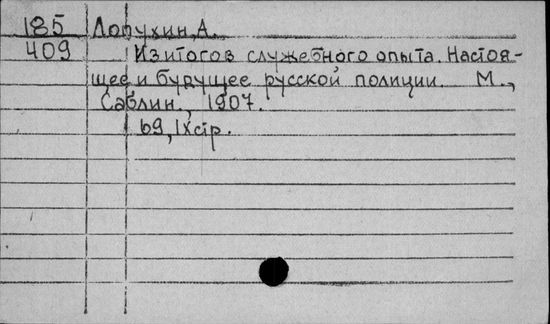 185 Лопухин, А.
409 Из итогов служебного опыта. Настоя-
щее и будущее русской полиции. М.,
Саблин., 1907.
69, IX стр.